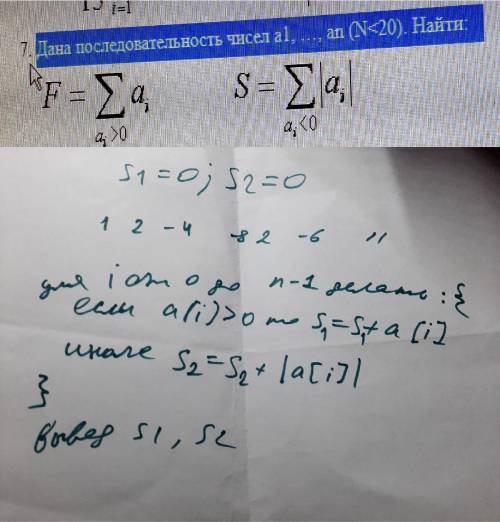 i=1
7. Дана последовательность чисел a1, ..., an (N<20). Найти:
F = ∑ aᵢ S = ∑ |aᵢ|
aᵢ>0 aᵢ<0
S1=0; S2=0
1 2 -4 -8 2 -6 11
для i от 0 до n-1 делать: {
если a(i)>0 то S1=S1+a[i]
иначе S2=S2+|a[i]|
}
вывод S1, S2